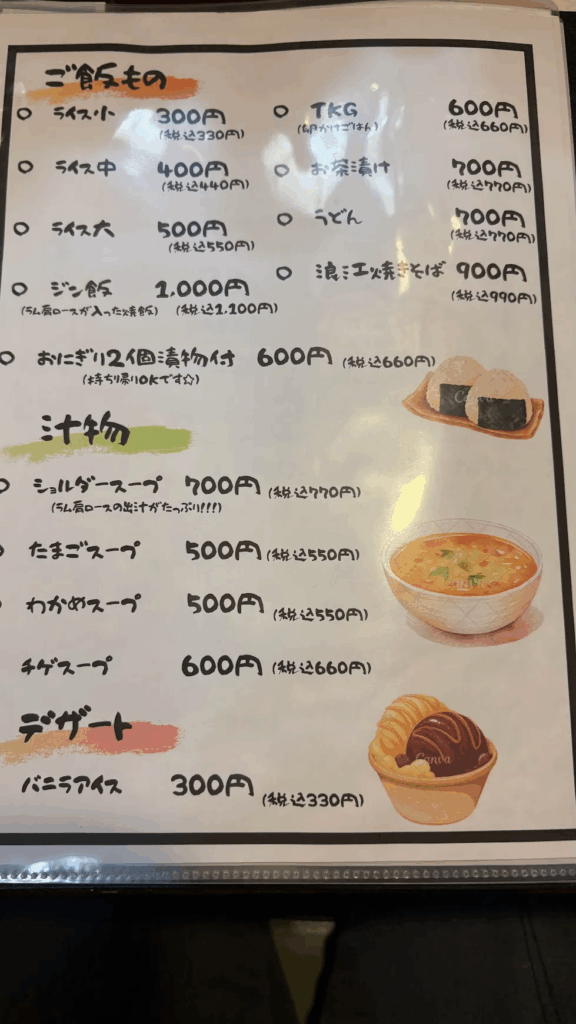 ご飯もの
ライス小 300円
(税込330円)
ライス中 400円
(税込440円)
ライス大 500円
(税込550円)
ジン飯 1,000円
(ラム肩ロースが入った焼飯) (税込1,100円)
TKG 600円
(卵かけごはん) (税込660円)
お茶漬け 700円
(税込770円)
うどん 700円
(税込770円)
浪江焼きそば 900円
(税込990円)
おにぎり2個漬物付 600円 (税込660円)
(持ち帰りOKです☆)
汁物
ショルダースープ 700円 (税込770円)
(ラム肩ロースの出汁がたっぷり!!!)
たまごスープ 500円 (税込550円)
わかめスープ 500円 (税込550円)
チゲスープ 600円 (税込660円)
デザート
バニラアイス 300円 (税込330円)
Canva